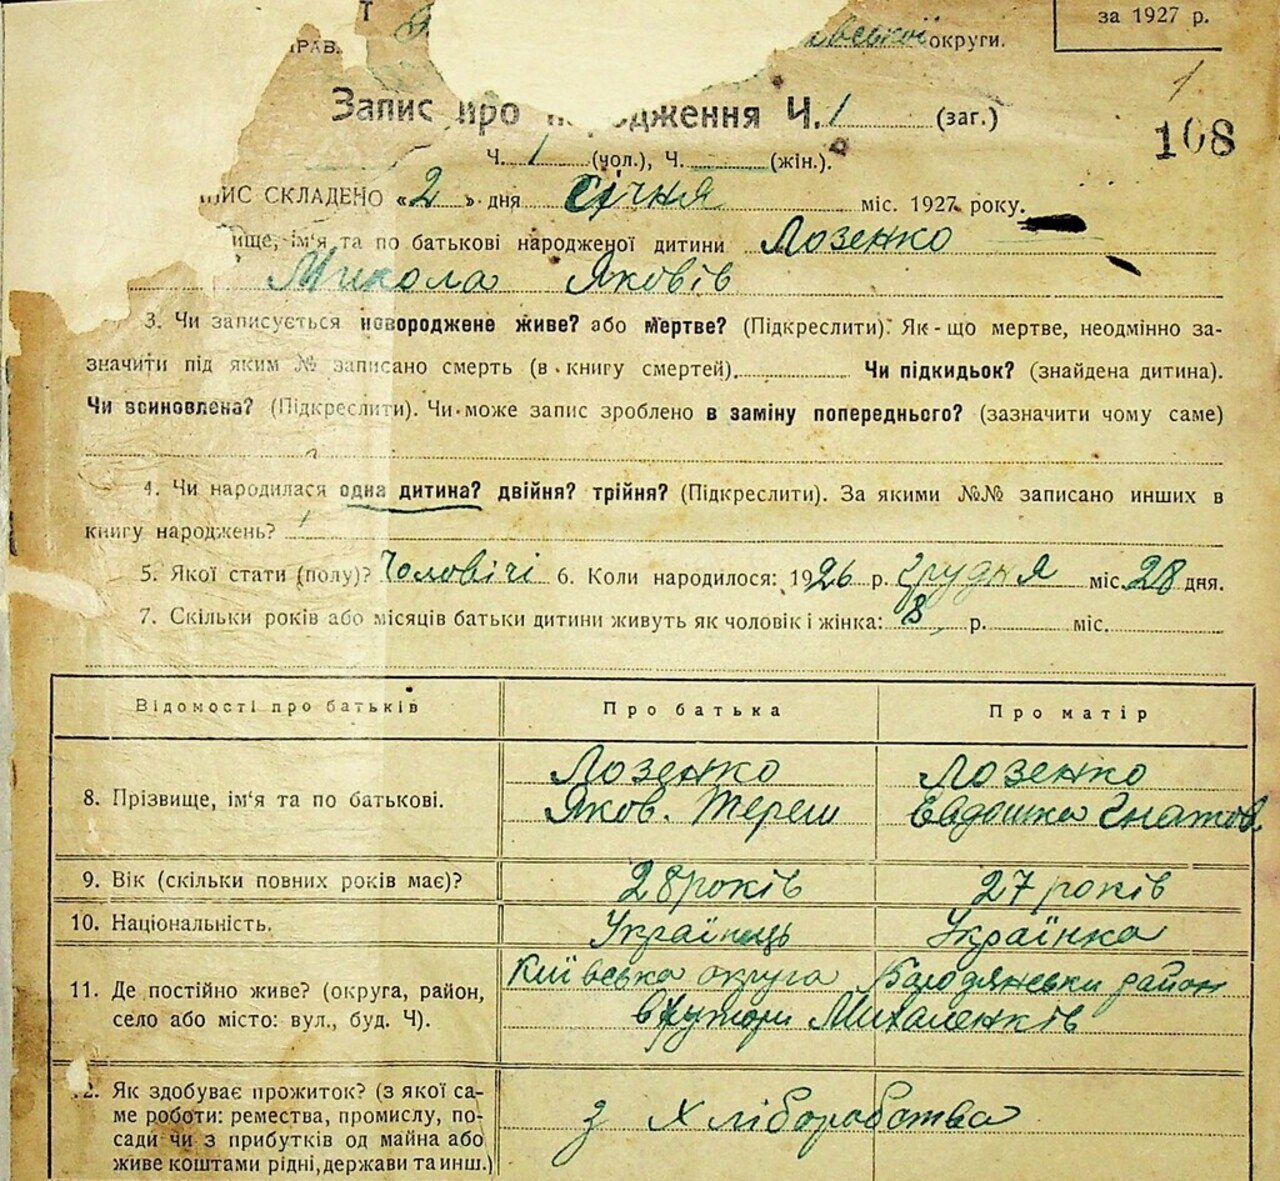 за 1927 р.
округи.
1
Запис про дження Ч. 1 (заг.)
108
Ч. 1 (чол.), Ч. (жін.).
ИС СКЛАДЕНО «2» дня Січня міс. 1927 року.
ище, ім'я та по батькові народженої дитини Лозенко
Микола Яковів
3. Чи записується новороджене живе? або мертве? (Підкреслити). Як-що мертве, неодмінно за-
значити під яким № записано смерть (в книгу смертей). Чи підкидьок? (знайдена дитина).
Чи всиновлена? (Підкреслити). Чи може запис зроблено в заміну попереднього? (зазначити чому саме)
4. Чи народилася одна дитина? двійня? трійня? (Підкреслити). За якими №№ записано инших в
книгу народжень?
5. Якої стати (полу)? Чоловічі 6. Коли народилося: 1926 р. Грудня міс. 28 дня.
7. Скільки років або місяців батьки дитини живуть як чоловік і жінка: 8 р. міс.
Відомості про батьків Про батька Про матір
Лозенко Лозенко
8. Прізвище, ім'я та по батькові. Яков. Тереш Евдошка Гнатов.
9. Вік (скільки повних років має)? 28 років 27 років
10. Національність. Українець Українка
Київська округа Бородянськи район
11. Де постійно живе? (округа, район,
село або місто: вул., буд. Ч). в хутори Михаленків
12. Як здобуває прожиток? (з якої са-
ме роботи: ремества, промислу, по- з Хліборобства
сади чи з прибутків од майна або
живе коштами рідні, держави та инш.)